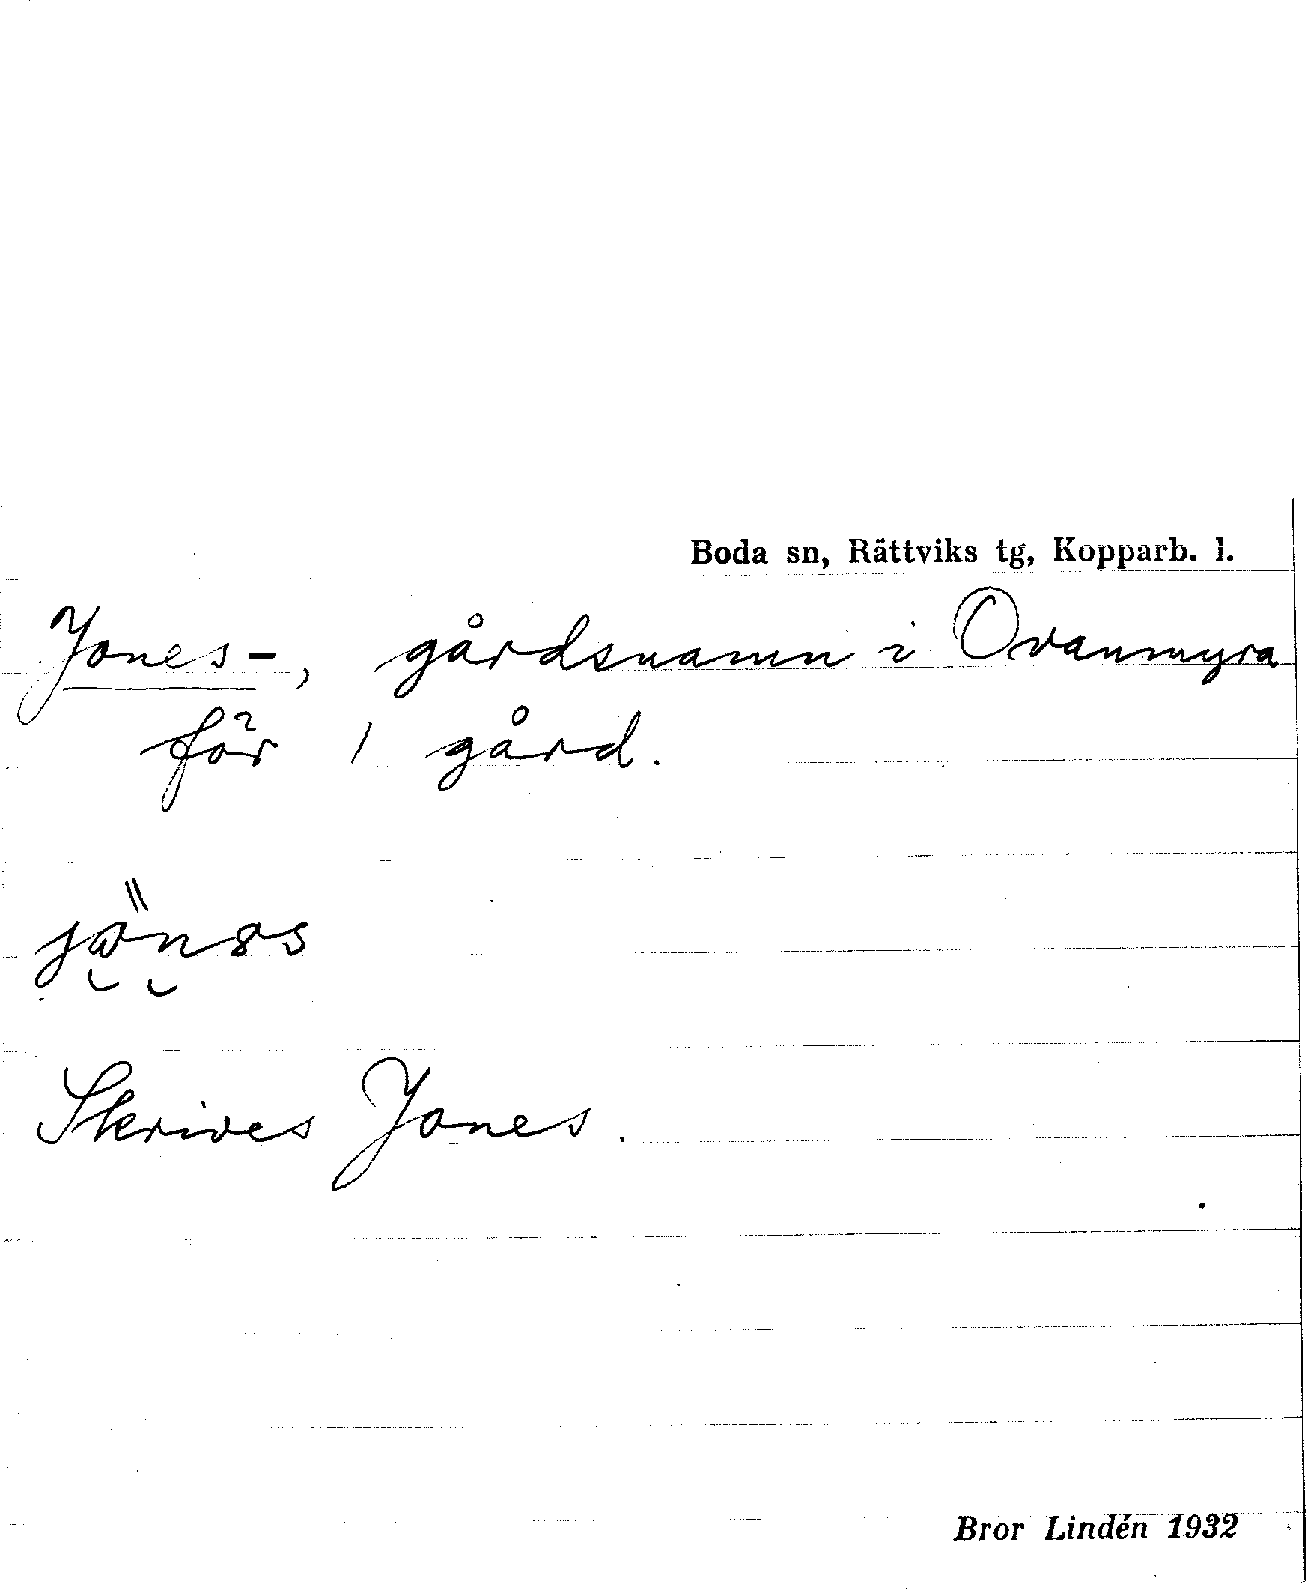 Boda sn, Rättviks tg, Kopparb. l.
Jones-, gårdsnamn i Ovanmyra
för 1 gård.
Skrives Jones.
Bror Lindén 1932